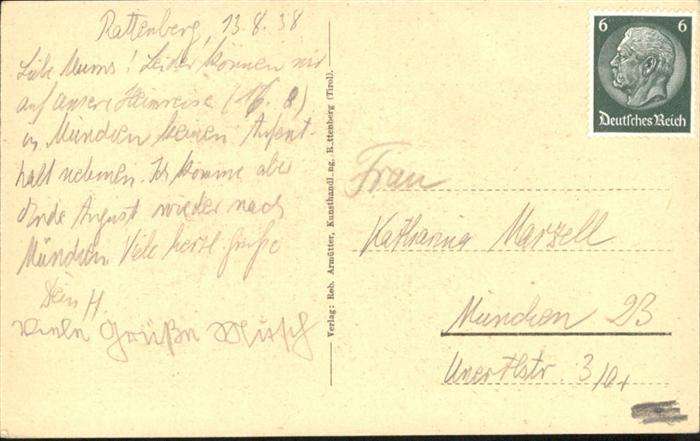 Rattenberg, 13.8.38
Liebe Mums! Leider können wir
auf unsere Heimreise (16.8)
in München keinen Aufent-
halt nehmen. Ich komme aber
Ende August wieder nach
München Viele herzl. Grüße
Dein H
Viele Grüße Mutsch
Verlag: Reb. Armütter, Kunsthandl.ng, R.ttenberg (Tirol).
6 6
Deutsches Reich
Frau
Katharina Marzell
München 23
Unertlstr. 3/